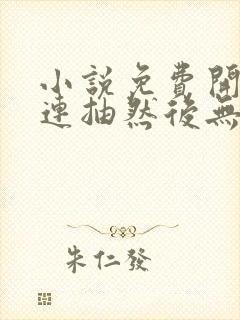 小說免費開
連抽然後無
朱仁發